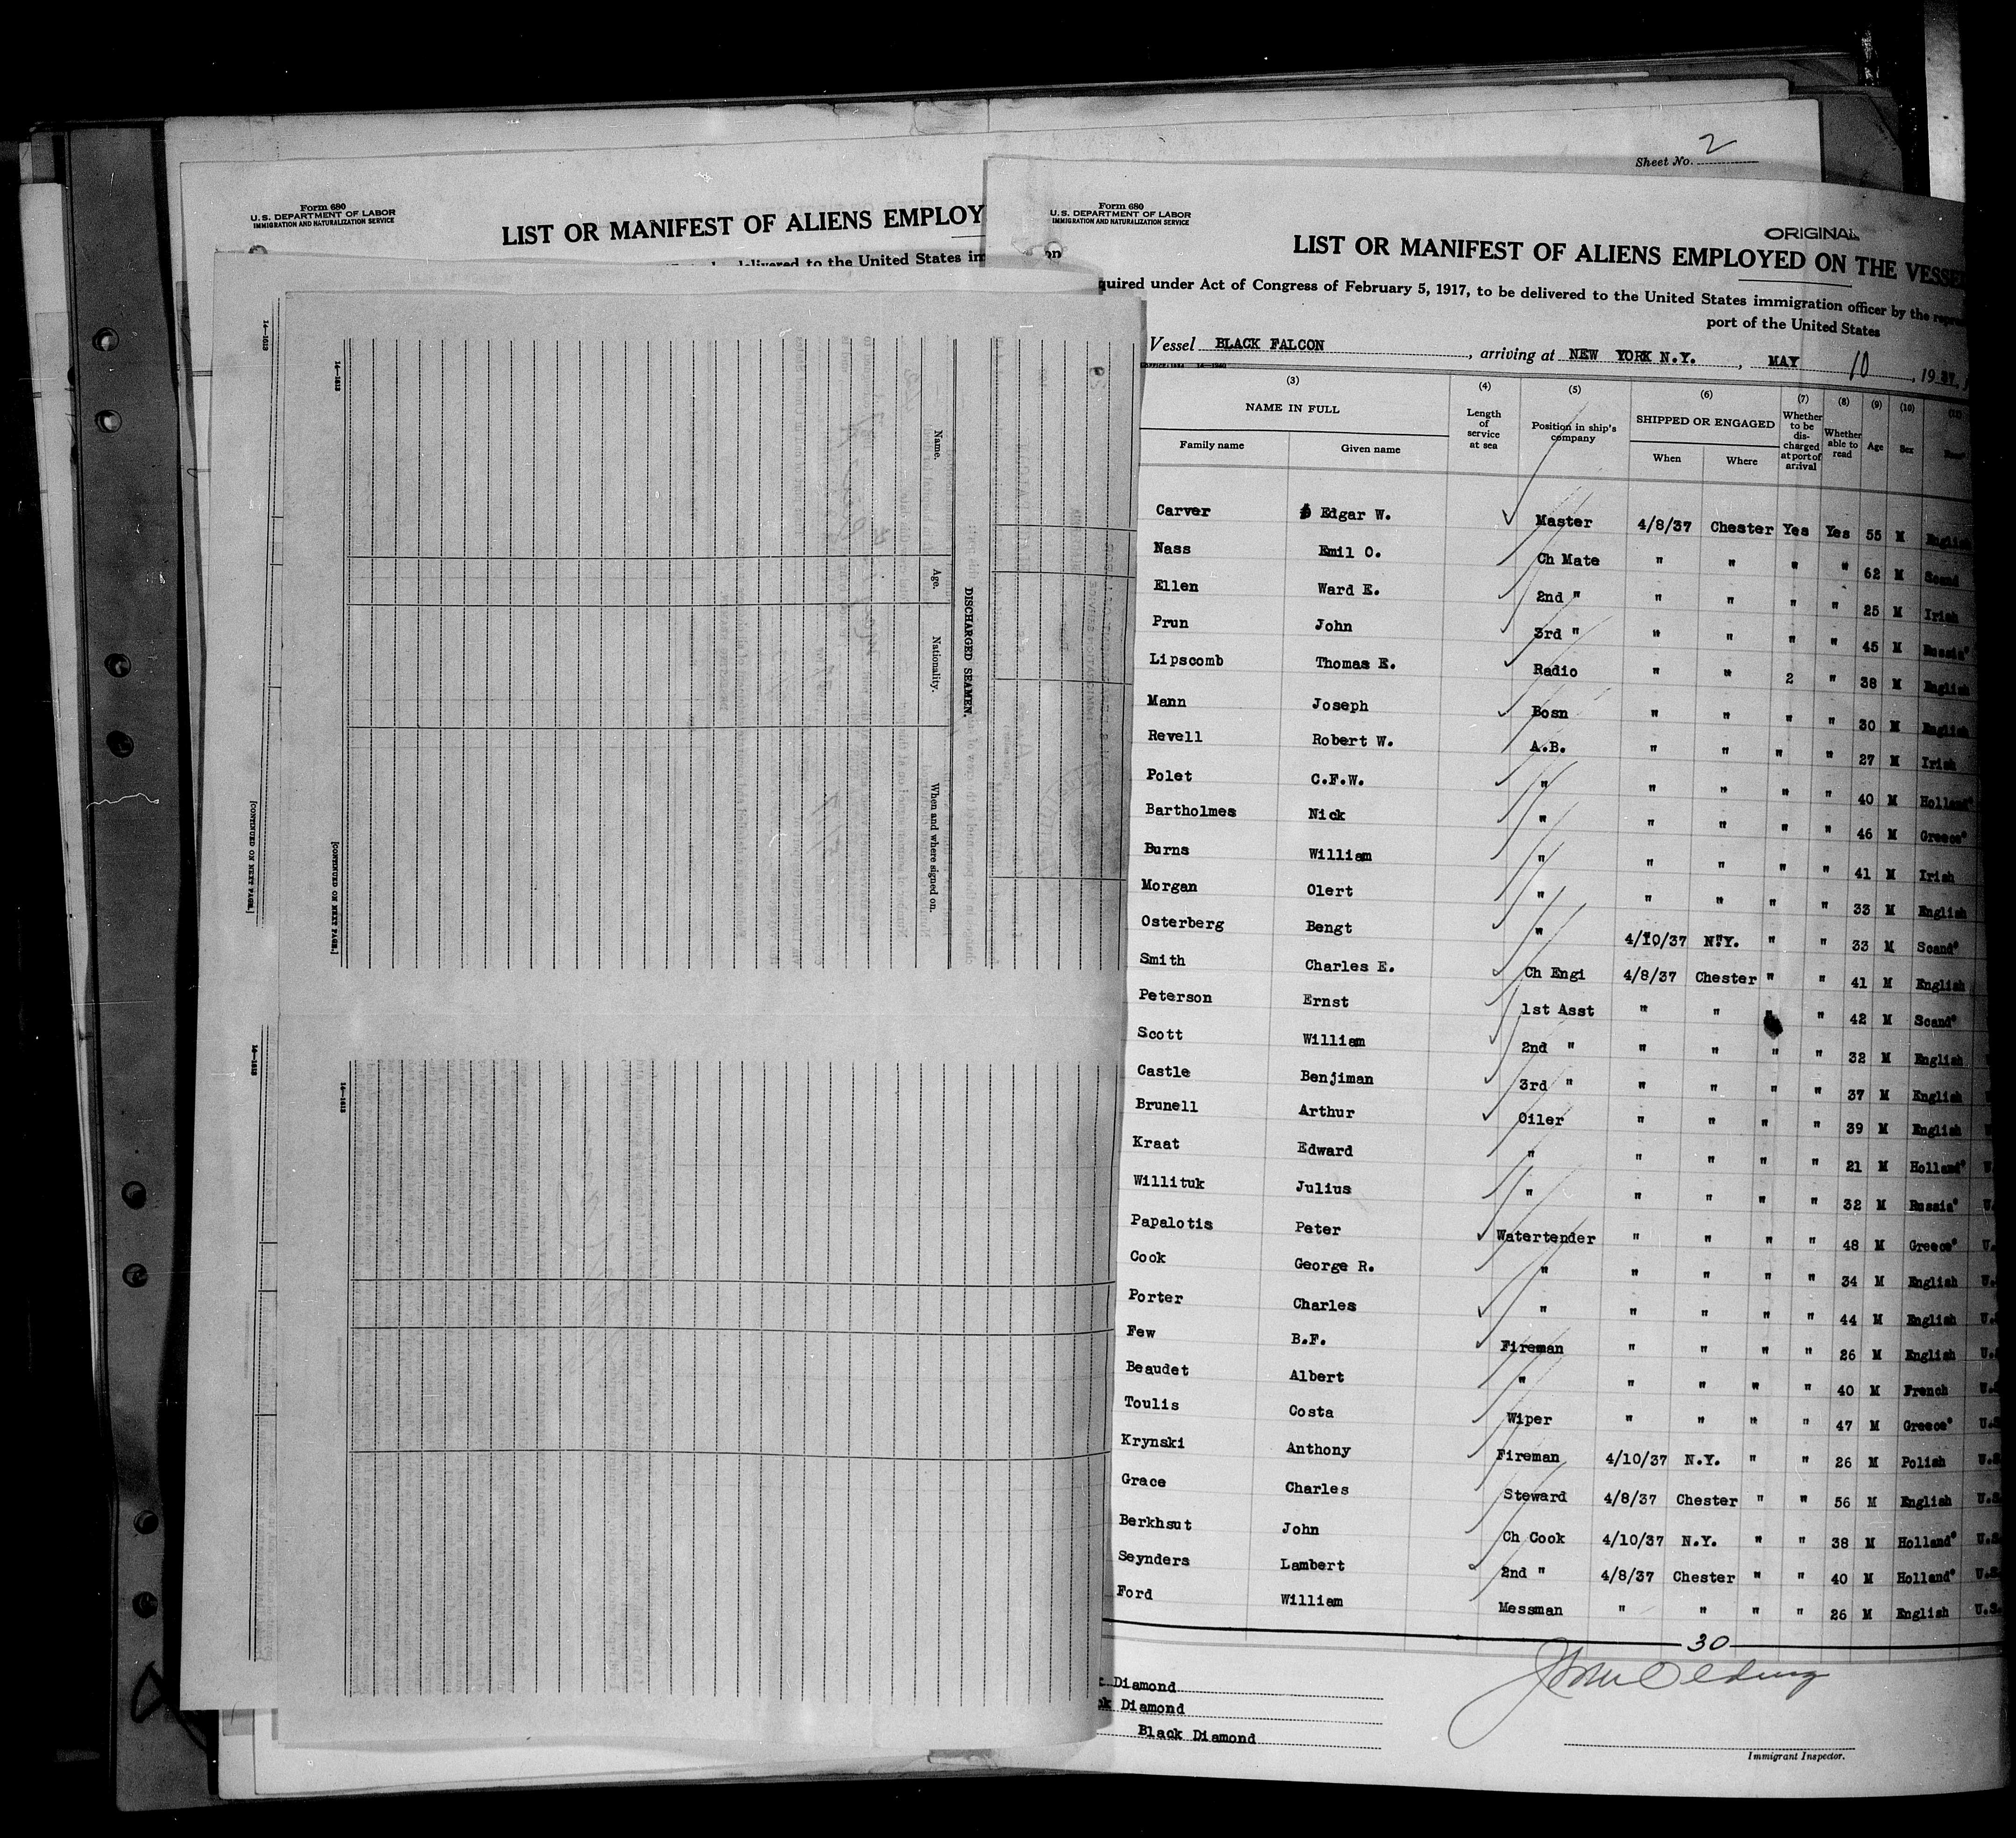 Sheet No. 2
Form 680
U. S. DEPARTMENT OF LABOR
IMMIGRATION AND NATURALIZATION SERVICE
LIST OR MANIFEST OF ALIENS EMPLOY
delivered to the United States im
14—1613
14—1613
[CONTINUED ON NEXT PAGE.]
[CONTINUED ON NEXT PAGE.]
14—1613
14—1613
DISCHARGED SEAMEN.
Name. Age. Nationality. When and where signed on.
Form 680
U. S. DEPARTMENT OF LABOR
IMMIGRATION AND NATURALIZATION SERVICE
ORIGINAL
LIST OR MANIFEST OF ALIENS EMPLOYED ON THE VESSE
quired under Act of Congress of February 5, 1917, to be delivered to the United States immigration officer by the repre
port of the United States
Vessel BLACK FALCON, arriving at NEW YORK N.Y., MAY 10, 1937
(3) (4) (5) (6) (7) (8) (9) (10) (11)
NAME IN FULL
Family name Given name
Length of service at sea
Position in ship's company
SHIPPED OR ENGAGED
When Where
Whether to be discharged at port of arrival
Whether able to read
Age Sex Race
Carver Edgar W. Master 4/8/37 Chester Yes Yes 55 M English
Nass Emil O. Ch Mate " " " " 62 M Scand
Ellen Ward E. 2nd " " " " " 25 M Irish
Prun John 3rd " " " " " 45 M Russia*
Lipscomb Thomas E. Radio " " 2 " 38 M English
Mann Joseph Bosn " " " " 30 M English
Revell Robert W. A.B. " " " " 27 M Irish
Polet C.F.W. " " " " " 40 M Holland*
Bartholmes Nick " " " " " 46 M Greece*
Burns William " " " " " 41 M Irish
Morgan Olert " " " " " 33 M English
Osterberg Bengt " 4/10/37 N.Y. " " 33 M Scand*
Smith Charles E. Ch Engi 4/8/37 Chester " " 41 M English
Peterson Ernst 1st Asst " " " 42 M Scand*
Scott William 2nd " " " " " 32 M English
Castle Benjiman 3rd " " " " " 37 M English
Brunell Arthur Oiler " " " " 39 M English
Kraat Edward " " " " " 21 M Holland* U.
Willituk Julius " " " " " 32 M Russia* U.
Papalotis Peter Watertender " " " " 48 M Greece* U.
Cook George R. " " " " " 34 M English U.
Porter Charles " " " " " 44 M English U.
Few B.F. Fireman " " " " 26 M English U.
Beaudet Albert " " " " " 40 M French U.S
Toulis Costa Wiper " " " " 47 M Greece* U.S
Krynski Anthony Fireman 4/10/37 N.Y. " " 26 M Polish U.S.
Grace Charles Steward 4/8/37 Chester " " 56 M English U.S.
Berkhsut John Ch Cook 4/10/37 N.Y. " " 38 M Holland* U.S.
Seynders Lambert 2nd " 4/8/37 Chester " " 40 M Holland* U.S.
Ford William Messman " " " " 26 M English U.S.
30
Diamond
ck Diamond
Black Diamond
Immigrant Inspector.